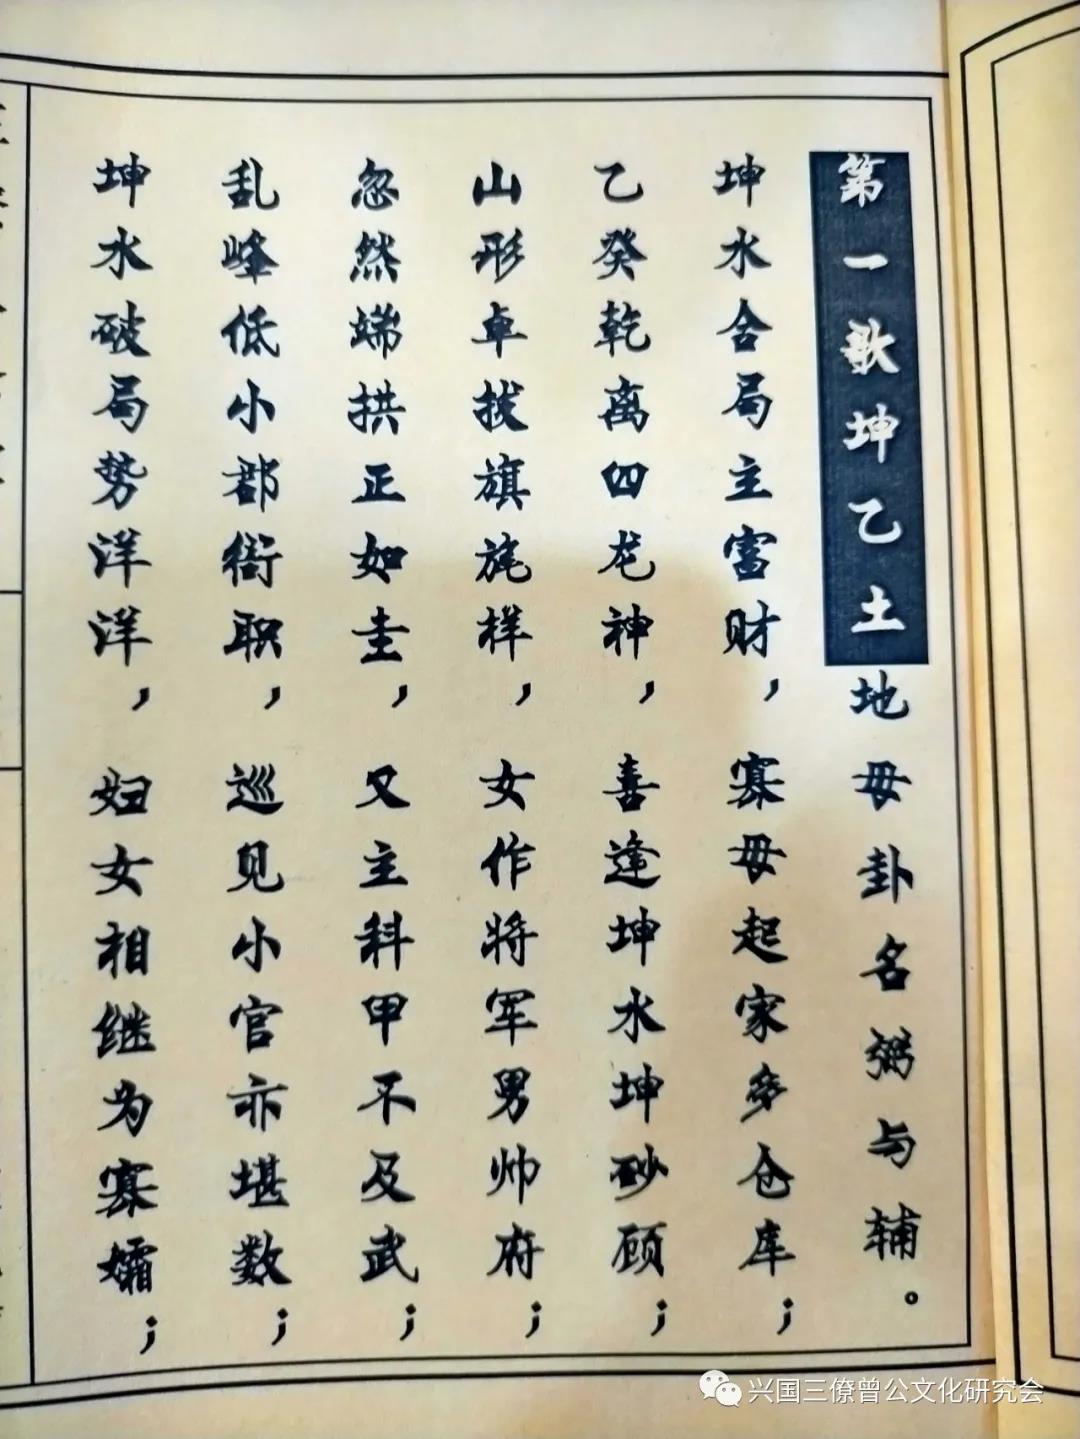 第一歌坤乙土地母卦名弼与辅。
坤水合局主富财，寡母起家多仓库；
乙癸乾离四龙神，喜逢坤水坤砂顾；
山形卓拔旗旄样，女作将军男帅府；
忽然端拱正如圭，又主科甲不及武；
乱峰低小郡衙职，巡见小官亦堪数；
坤水破局势洋洋，妇女相继为寡孀；
兴国三僚曾公文化研究会